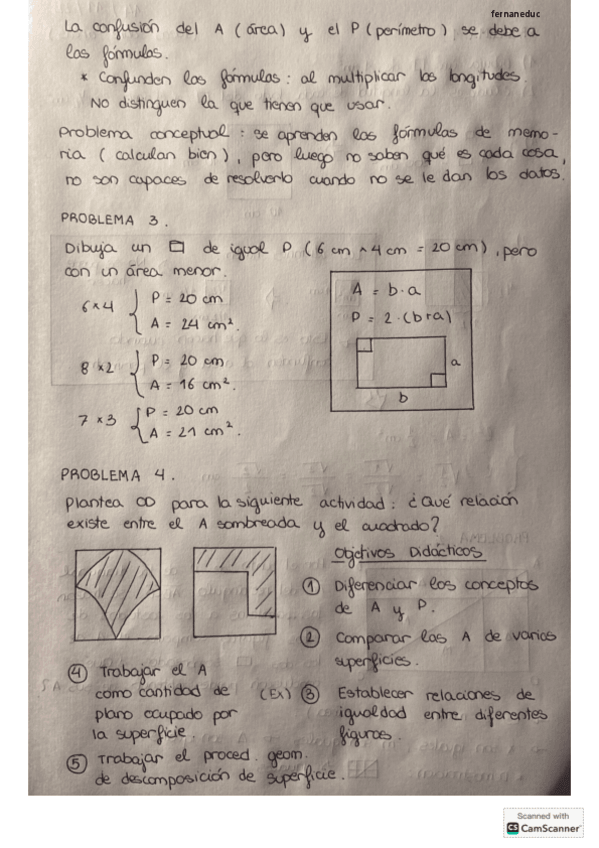 fernaneduc
La confusión del A (área) y el P (perímetro) se debe a
las fórmulas.
* Confunden las fórmulas: al multiplicar las longitudes.
No distinguen la que tienen que usar.
Problema conceptual: se aprenden las fórmulas de memo-
ria (calculan bien), pero luego no saben qué es cada cosa,
no son capaces de resolverlo cuando no se le dan los datos.
PROBLEMA 3.
Dibuja un ▭ de igual P (6 cm × 4 cm = 20 cm), pero
con un área menor.
6 × 4 { P = 20 cm
A = 24 cm².
8 × 2 { P = 20 cm
A = 16 cm².
7 × 3 { P = 20 cm
A = 21 cm².
A = b·a
P = 2·(b+a)
a
b
PROBLEMA 4.
Plantea OD para la siguiente actividad: ¿Qué relación
existe entre el A sombreada y el cuadrado?
Objetivos Didácticos
① Diferenciar los conceptos
de A y P.
② Comparar las A de varias
superficies.
(Ex) ③ Establecer relaciones de
igualdad entre diferentes
figuras.
④ Trabajar el A
como cantidad de
plano ocupado por
la superficie.
⑤ Trabajar el proced. geom.
de descomposición de superficie.
Scanned with
CS CamScanner